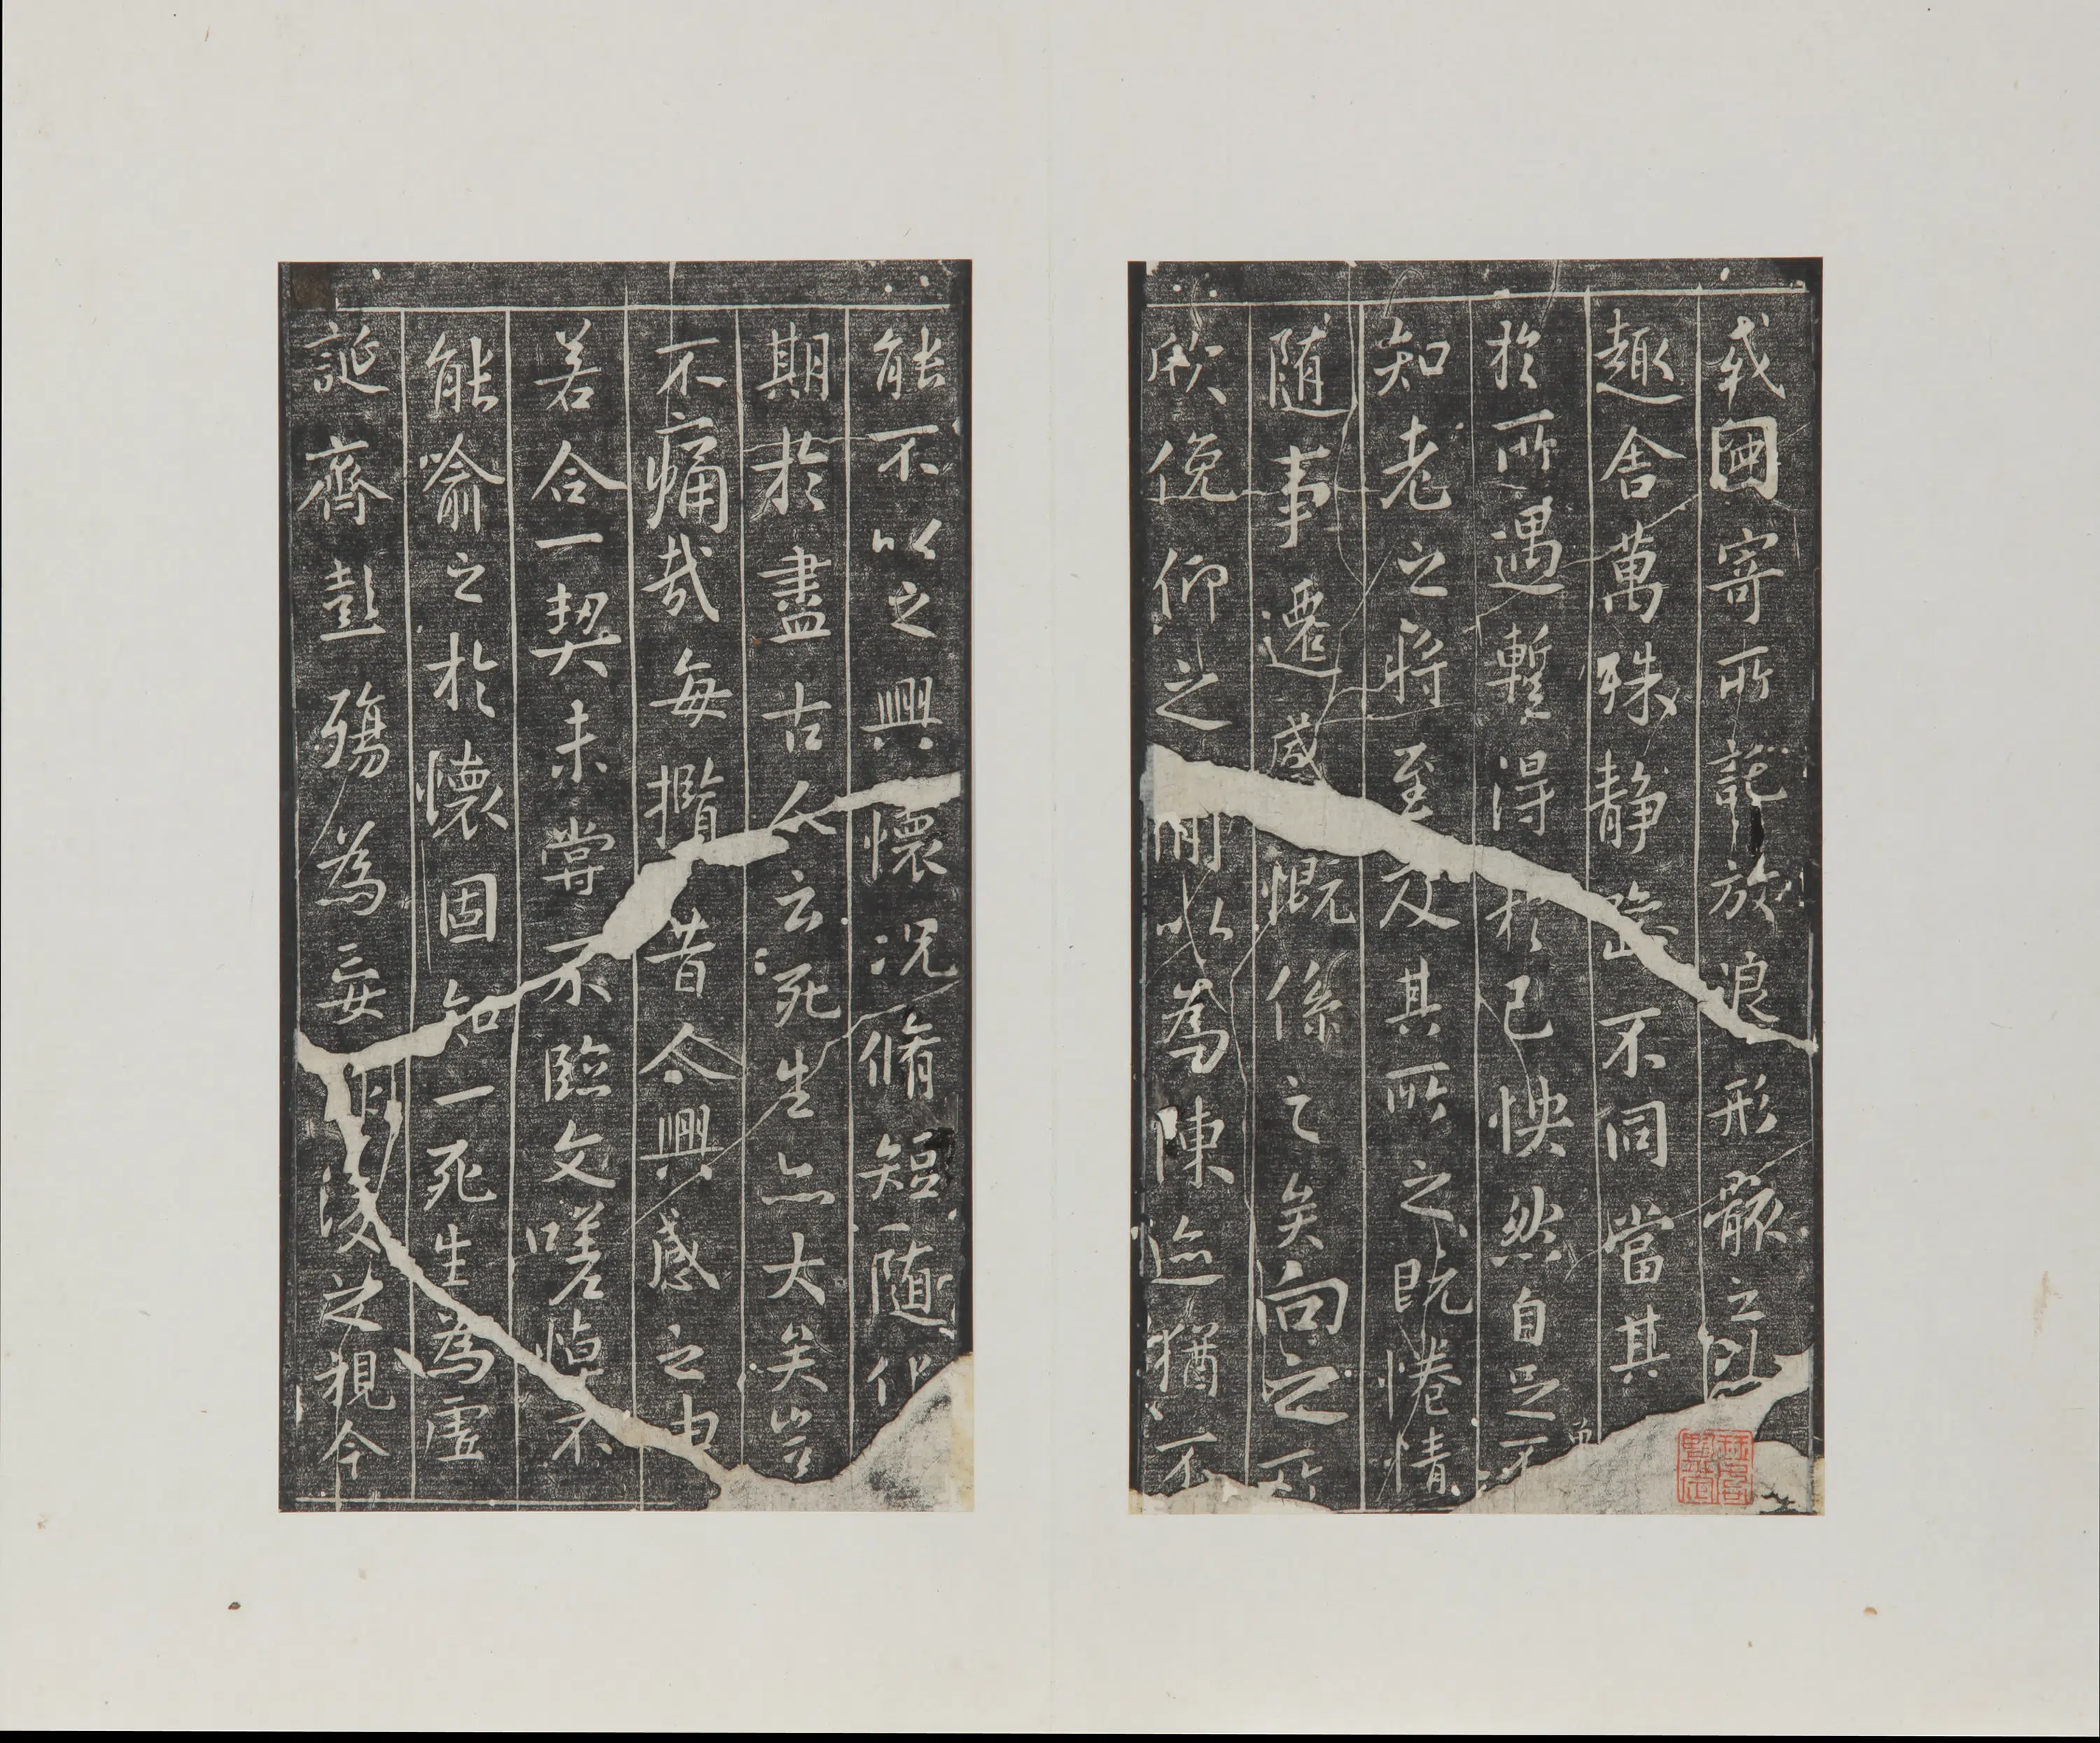 或因寄所託放浪形骸之外
趣舍萬殊静躁不同當其
於所遇暫得於己怏然自足不
知老之將至及其所之既惓情
随事遷感慨係之矣向之所
欣俛仰之間以為陳迹猶不
能不以之興懷況脩短随化
期於盡古人云死生亦大矣豈
不痛哉每攬昔人興感之由
若合一契未嘗不臨文嗟悼不
能喻之於懷固知一死生為虛
誕齊彭殤為妄作後之視今